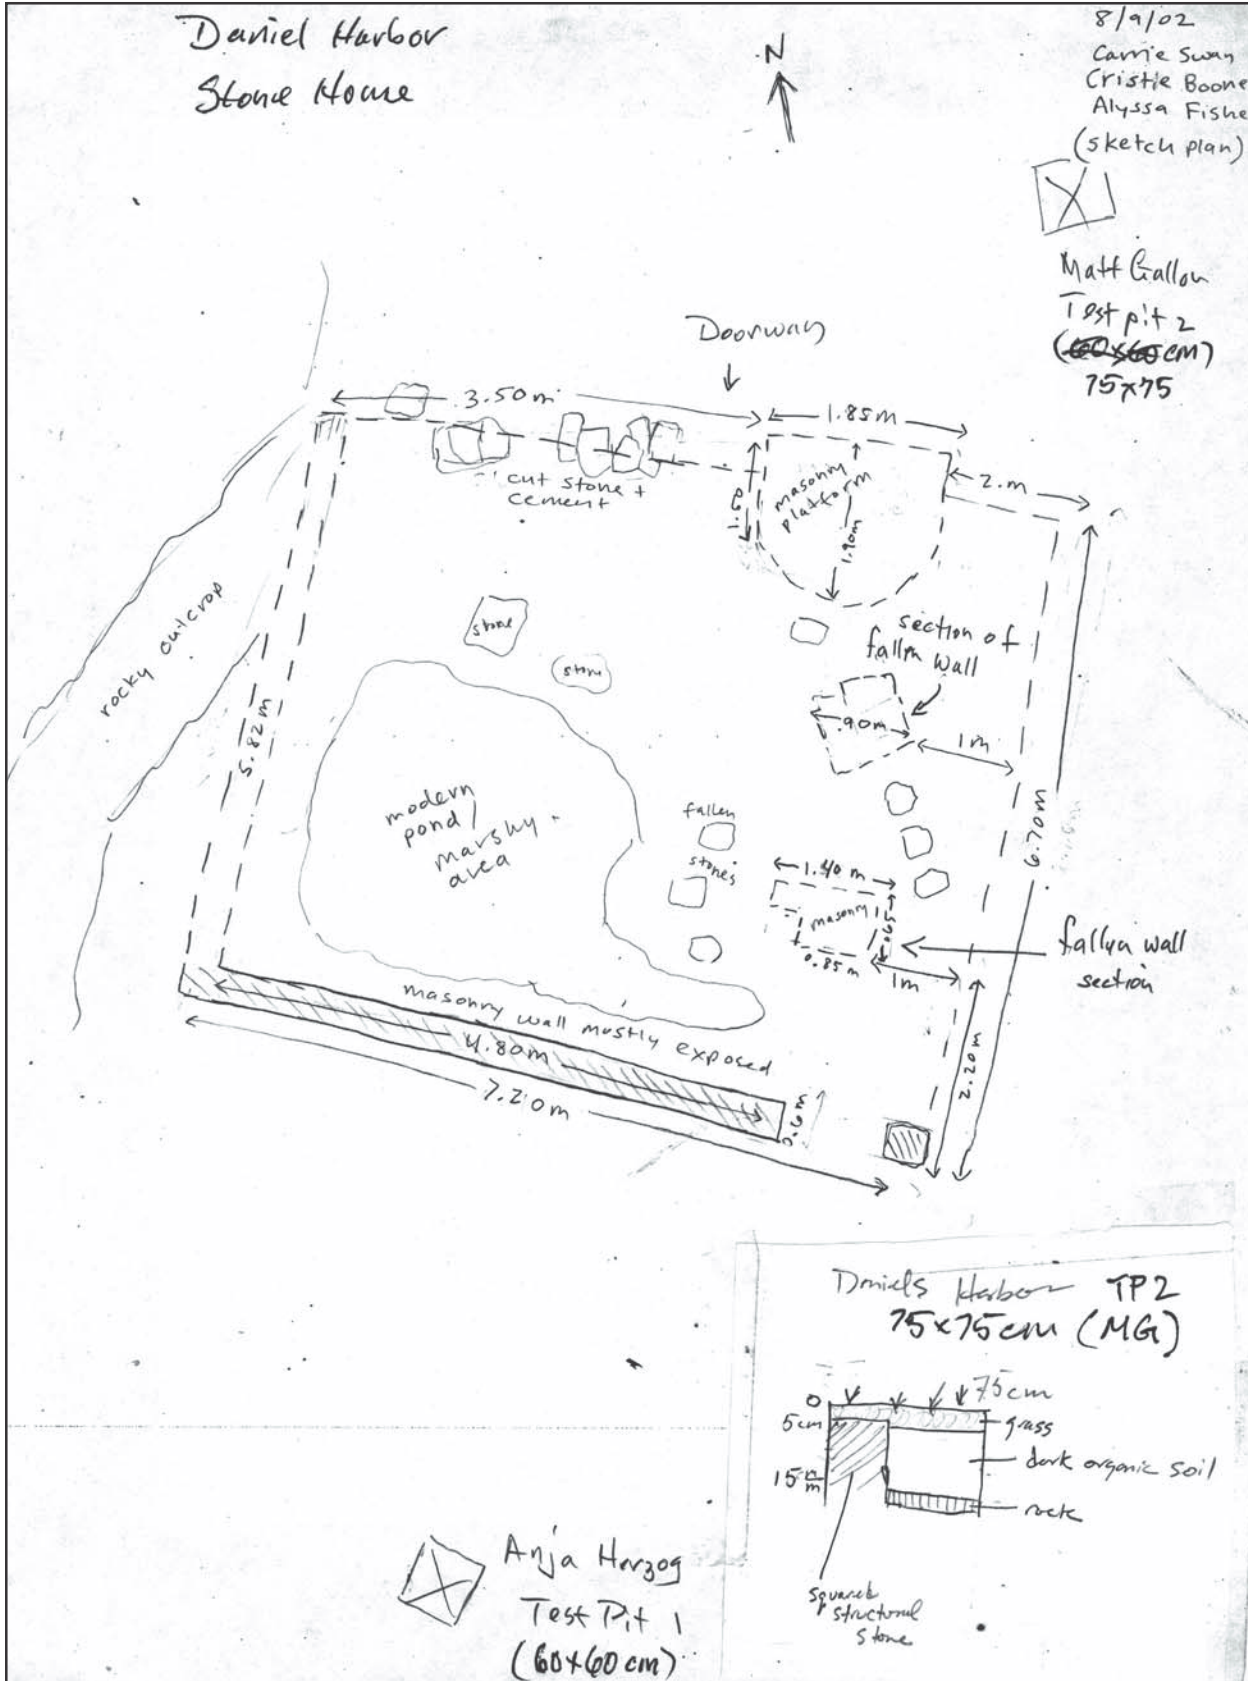 Daniel Harbor
Stone House
N
8/9/02
Carrie Swan
Cristie Boone
Alyssa Fishe
(sketch plan)
Matt Gallon
Test pit 2
(60x60 cm)
75x75
Doorway
3.50m
1.85m
cut stone +
cement
masonry
platform
1.90m
2.m
rocky outcrop
5.82m
stone
stone
section of
fallen wall
.90m
1m
6.70m
modern
pond/
marshy
area
fallen
stones
1.40 m
masonry
0.65
0.85 m
1m
fallen wall
section
2.20m
masonry wall mostly exposed
4.80m
7.20m
0.6m
Daniels Harbor TP2
75x75cm (MG)
75cm
0
5cm
15cm
grass
dark organic soil
rock
squared
structural
stone
Anja Herzog
Test Pit 1
(60x60 cm)